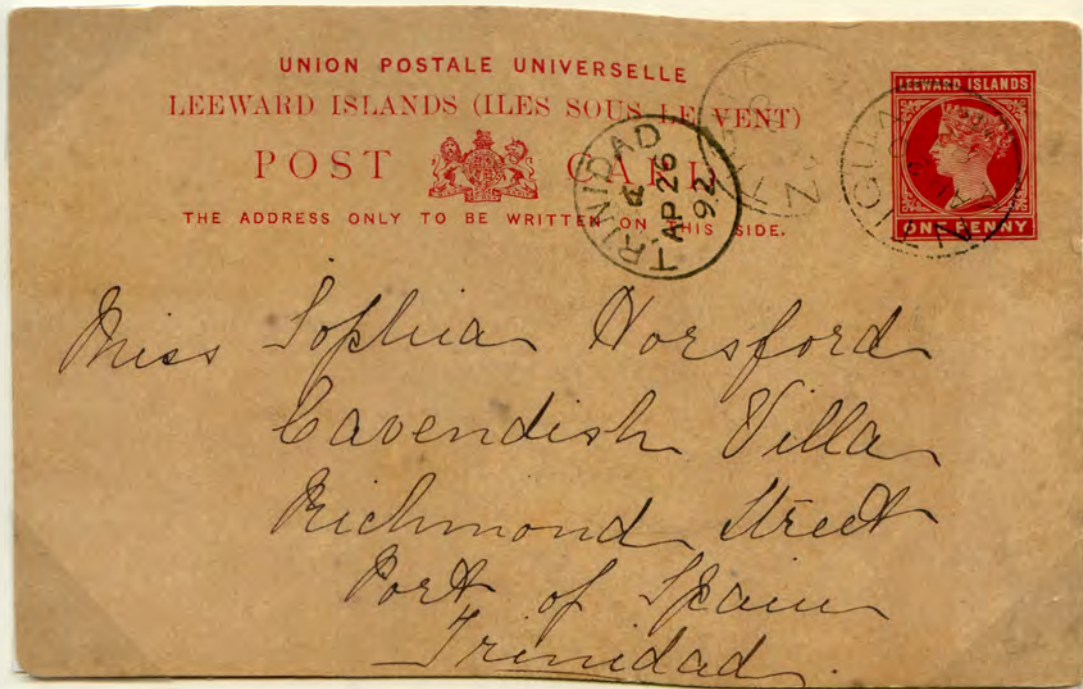 UNION POSTALE UNIVERSELLE
LEEWARD ISLANDS (ILES SOUS LE VENT)
POST CARD
THE ADDRESS ONLY TO BE WRITTEN ON THIS SIDE.
LEEWARD ISLANDS
ONE PENNY
TRINIDAD
A
AP 26
92
Miss Sophia Horsford
Cavendish Villa
Richmond Street
Port of Spain
Trinidad.